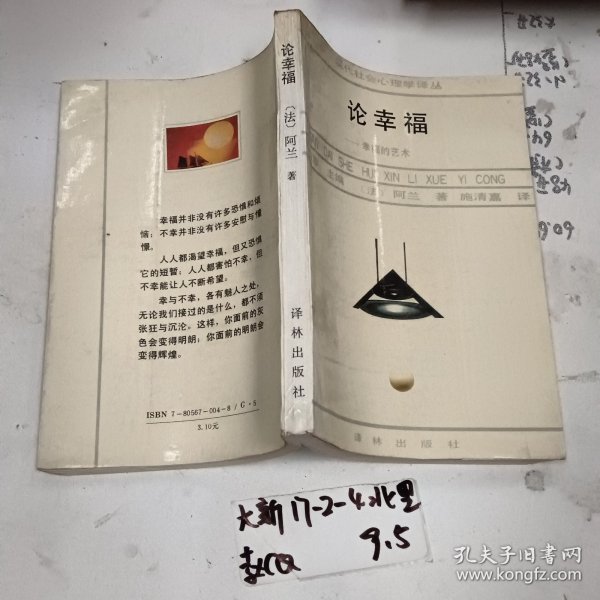 幸福并非没有许多恐惧和烦
恼；不幸并非没有许多安慰与憧
憬。
人人都渴望幸福，但又恐惧
它的短暂；人人都害怕不幸，但
不幸能让人不断希望。
幸与不幸，各有魅人之处，
无论我们接过的是什么，都不须
张狂与沉沦。这样，你面前的灰
色会变得明朗；你面前的明朗会
变得辉煌。
ISBN 7-80567-004-8/C·5
3.10元
论幸福
〔法〕阿兰 著
译林出版社
代社会心理学译丛
论幸福
幸福的艺术
DAI SHE HUI XIN LI XUE YI CONG
主编
〔法〕阿兰 著 施清嘉 译
译林出版社
17-2-4北里
9.5
孔夫子旧书网
www.kongfz.com